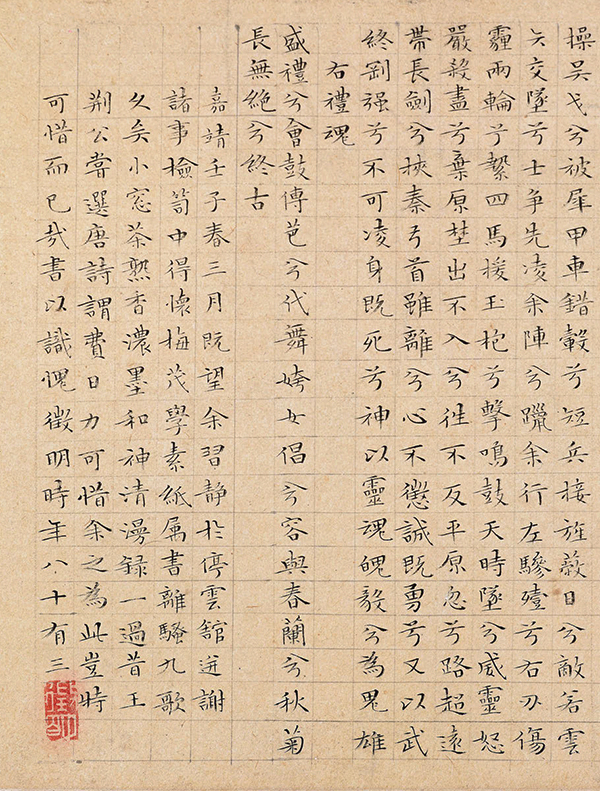 操吴戈兮被犀甲車錯轂兮短兵接旌蔽日兮敵若雲
矢交墜兮士争先凌余陣兮躐余行左驂殪兮右刃傷
霾兩輪兮縶四馬援玉枹兮擊鳴鼓天時墜兮威靈怒
嚴殺盡兮棄原埜出不入兮往不反平原忽兮路超遠
帶長劍兮挾秦弓首雖離兮心不懲誠既勇兮又以武
終剛强兮不可凌身既死兮神以靈魂魄毅兮為鬼雄
右禮魂
盛禮兮會鼓傳芭兮代舞姱女倡兮容與春蘭兮秋菊
長無絶兮終古
嘉靖壬子春三月既望余習静於停雲舘迸謝
諸事檢笥中得懷梅茂學素紙属書離騷九歌
久矣小窓茶熟香濃墨和神清漫録一過昔王
荆公嘗選唐詩謂費日力可惜余之為此豈特
可惜而已哉書以識愧徵明時年八十有三
徵明